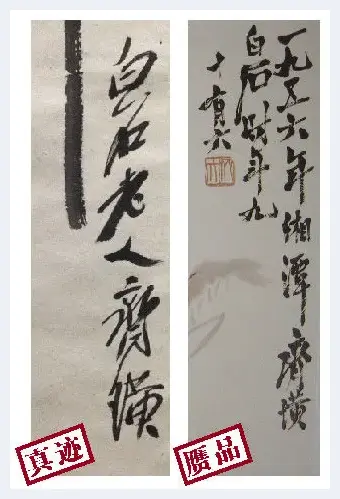 白石老人齊璜
真迹
一九五六年湘潭齊璜
白石时年九
十有六
赝品